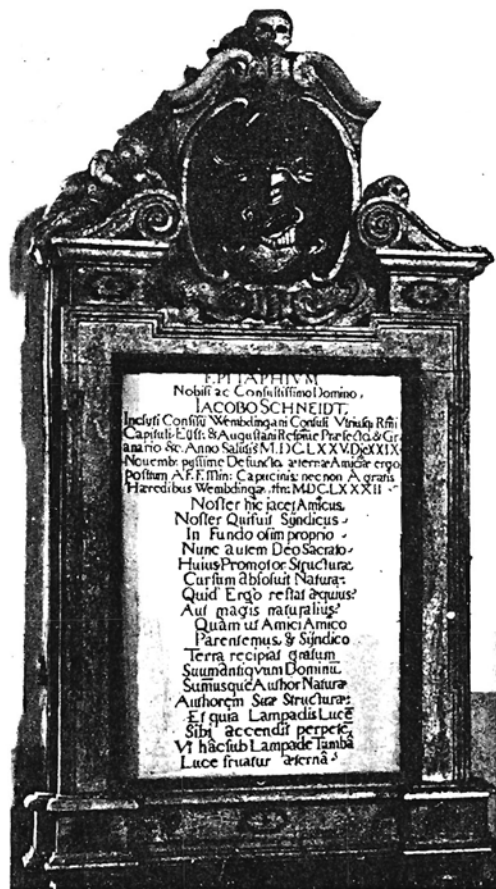 EPITAPHIVM
Nobili ac Consultissimo Domino,
IACOBO SCHNEIDT,
Inclyti Consilij Wembdingani Consuli Vtriusq3 Rmi
Capituli Eystt: & Augustani Respiue Præfecto, & Gr
anario &c. Anno Salutis M.DC.LXXV. Die XXIX
Novemb: pyssime Defuncto, æternæ Amiciæ ergo
positum A F.F. Min: Capucinis, nec non A gratis
Hæredibus Wembdingæ MDCLXXXII
Noster hic jacet Amicus,
Noster Qui fuit Syndicus
In Fundo olim proprio
Nunc autem Deo Sacrato
Huius Promotor Structuræ
Cursum absolvit Naturæ
Quid Ergo restat æquius?
Aut magis naturalius?
Quàm ut Amici Amico
Parentemus, & Syndico
Terra recipiat gratum
Suum antiqvum Dominũ
Sumusque Author Naturæ
Authorem Suæ Structuræ:
Et quia Lampadis Lucẽ
Sibi accendit perpetẽ,
Vt hâc sub Lampade Tumbâ
Luce fruatur æternâ